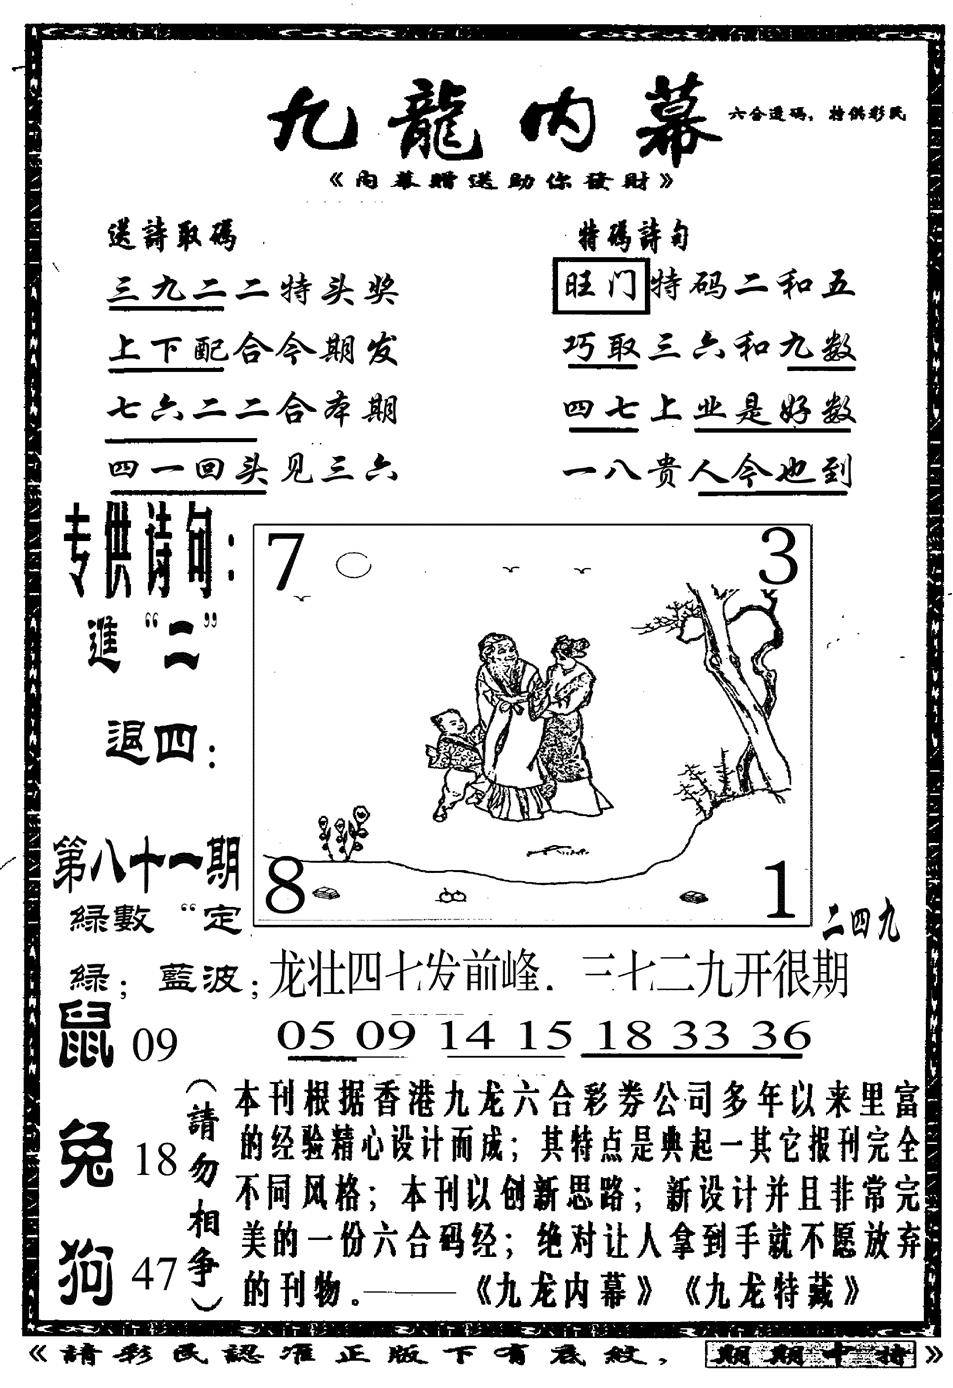 九龍内幕
六合透码，特供彩民
《内幕赠送助你發財》
送詩取碼
三九二二特头奖
上下配合今期发
七六二二合本期
四一回头见三六
特碼詩句
旺门特码二和五
巧取三六和九数
四七上业是好数
一八贵人今也到
专供诗句：
進“二”
退四：
第八十一期
綠數“定
綠；藍波；
7
3
8
1
二四九
龙壮四七发前峰．三七二九开很期
05 09 14 15 18 33 36
鼠 09
兔 18
狗 47
（請勿相争）
本刊根据香港九龙六合彩券公司多年以来里富
的经验精心设计而成；其特点是典起一其它报刊完全
不同风格；本刊以创新思路；新设计并且非常完
美的一份六合码经；绝对让人拿到手就不愿放弃
的刊物．——《九龙内幕》《九龙特藏》
《請彩民認准正版下有底紋，期期中特》